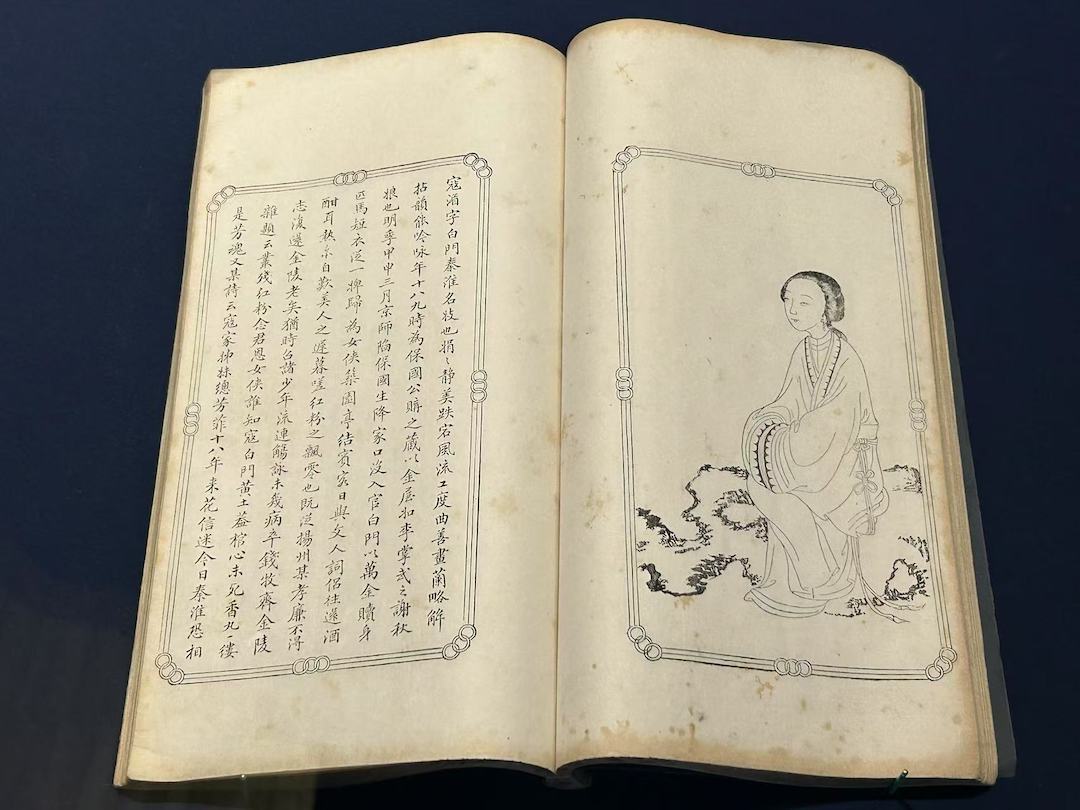 寇湄字白門秦淮名妓也娟〻静美跌宕風流工度曲善畫蘭略解
拈韻能吟咏年十八九時為保國公購之藏以金屋如李掌武之謝秋
娘也明季甲申三月京師陷保國生降家口沒入官白門以萬金贖身
匹馬短衣從一婢歸為女俠築園亭結賓客日與文人詞侶往還酒
酣耳熱亦自歎美人之遲暮嗟紅粉之飄零也既從揚州某孝廉不得
志復還金陵老矣猶時召諸少年流連觴詠未幾病卒錢牧齋金陵
雜題云叢殘紅粉念君恩女俠誰知寇白門黄土蓋棺心未死香丸一縷
是芳魂又某詩云寇家姊妹總芳菲十八年来花信迷今日秦淮恐相